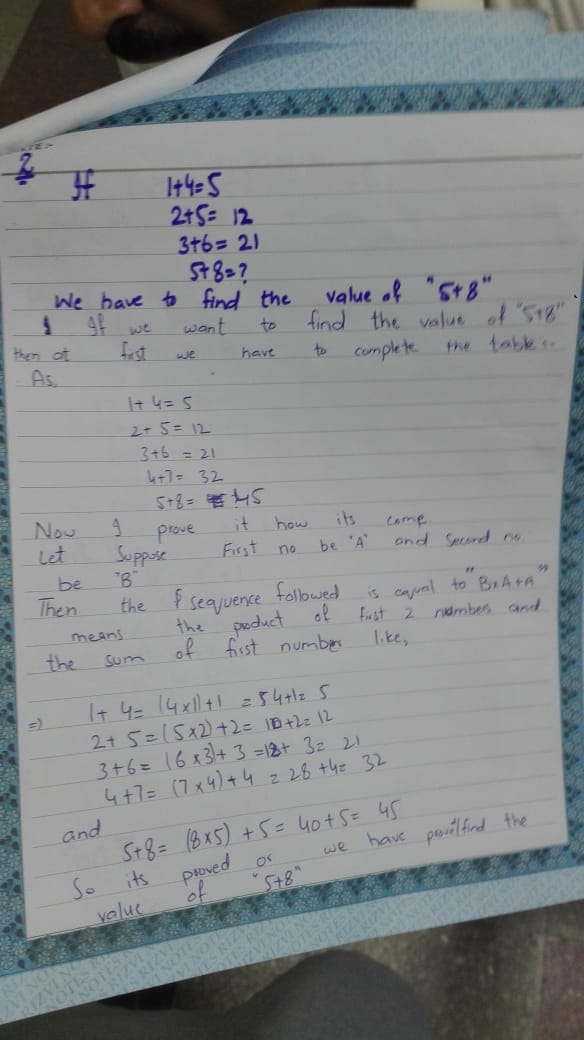 2 If 1+4=5
2+5= 12
3+6= 21
5+8=?
We have to find the value of "5+8"
If we want to find the value of "5+8"
then at first we have to complete the table.
As,
1+4= 5
2+5= 12
3+6 = 21
4+7= 32
5+8= 45
Now I prove it how its come.
Let Suppose First no be "A" and Second no
be "B"
Then the sequence followed is equal to "B×A+A"
means the product of first 2 numbers and
the sum of first number like,
=) 1+4= (4×1)+1 = 5 4+1= 5
2+5=(5×2)+2= 10+2= 12
3+6= (6×3)+3 =18+3= 21
4+7= (7×4)+4 = 28+4= 32
and
5+8= (8×5)+5= 40+5= 45
So its proved or we have find the
value of "5+8"